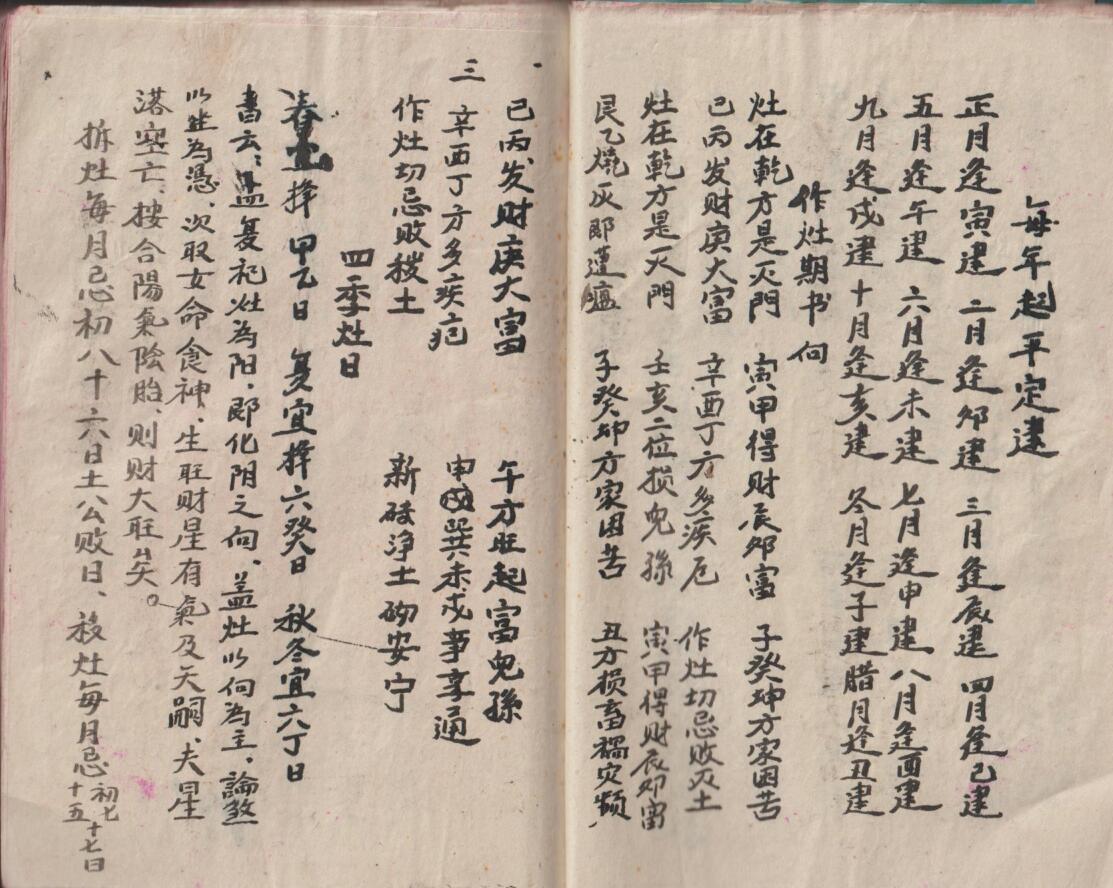 每年起平定建
正月逢寅建 二月逢卯建 三月逢辰建 四月逢己建
五月逢午建 六月逢未建 七月逢申建 八月逢酉建
九月逢戌建 十月逢亥建 冬月逢子建 腊月逢丑建
作灶期书向
灶在乾方是灭門 寅甲得财辰卯富 子癸坤方家困苦
己丙发财庚大富 辛酉丁方多疾厄 作灶切忌敗灭土
灶在乾方是灭門 壬亥二位损兒孫 寅甲得财辰卯富
艮乙燒灰即遭瘟 子癸坤方家困苦 丑方损畜禍灾频
己丙发财庚大富 午方旺起富兒孫
三 辛西丁方多疾疤 申巽未戍事享通
作灶切忌敗土 新砖净土砌安宁
四季灶日
春宜择甲乙日 夏宜择六癸日 秋冬宜六丁日
書云：盖复祀灶為阳、即化阴之向、盖灶以向為主、論煞
以坐為憑、次取女命食神、生旺财星有氣及天嗣、夫星
落空亡、按合陽氣陰胎、则财大旺矣。
拆灶每月忌初八十六日土公败日、移灶每月忌初七 十七日
十五